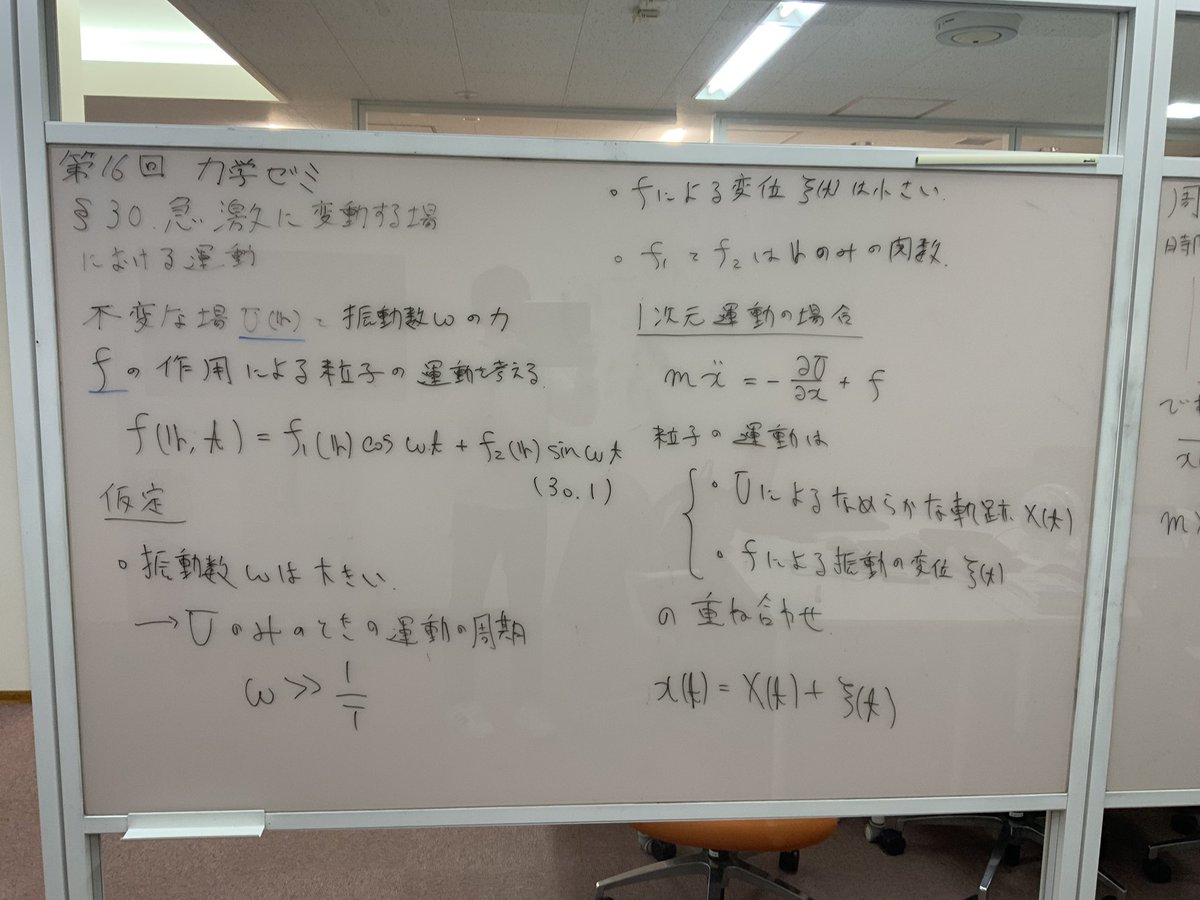 第16回 力学ゼミ
§30. 急激に変動する場
における運動
不変な場 U(𝕣) と 振動数 ω の力
f の 作用による粒子の 運動を考える.
f(𝕣, t) = f₁(𝕣) cos ωt + f₂(𝕣) sin ωt
(30.1)
仮定
◦ 振動数 ω は 大きい.
→ U のみのときの運動の周期
ω ≫ 1/T
◦ f による変位 ξ(t) は小さい.
◦ f₁ と f₂ は 𝕣 のみの関数.
1次元運動の場合
mẍ = - ∂U/∂x + f
粒子の運動は
{ ◦ U によるなめらかな軌跡 X(t)
◦ f による振動の変位 ξ(t)
の重ね合わせ.
x(t) = X(t) + ξ(t)
周
時間
で
m